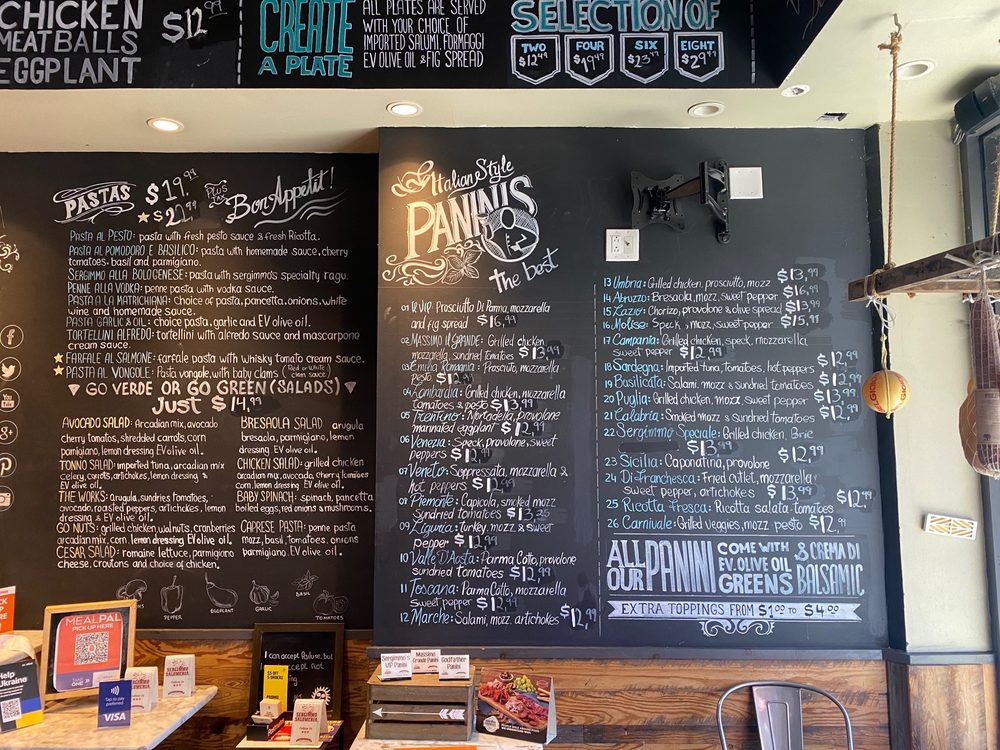 CHICKEN
MEATBALLS
EGGPLANT
$12.99
CREATE
A PLATE
ALL PLATES ARE SERVED
WITH YOUR CHOICE OF
IMPORTED SALUMI, FORMAGGI
EV OLIVE OIL & FIG SPREAD
SELECTION OF
TWO
$12.99
FOUR
$19.99
SIX
$23.99
EIGHT
$29.99
PASTAS
$19.99
PLUS
Bon Appetit!
PASTA AL PESTO: pasta with fresh pesto sauce & fresh Ricotta.
PASTA AL POMODORO E BASILICO: pasta with homemade sauce, cherry
tomatoes, basil and parmigiano.
SERGIMMO ALLA BOLOGENESE: pasta with sergimmo's specialty ragu.
PENNE ALLA VODKA: penne pasta with vodka sauce.
PASTA LA MATRICHIANA: Choice of pasta, pancetta, onions, white
wine and homemade sauce.
PASTA GARLIC & OIL: choice pasta, garlic and EV olive oil.
TORTELLINI ALFREDO: tortellini with alfredo sauce and mascarpone
cream sauce.
FARFALE AL SALMONE: farfale pasta with whisky tomato cream sauce.
PASTA AL VONGOLE: Pasta vongole, with baby clams (Red or White clam sauce)
GO VERDE OR GO GREEN (SALADS)
JUST $14.99
AVOCADO SALAD: Arcadian mix, avocado
cherry tomatoes, shredded carrots, corn
parmigiano, lemon dressing EV olive oil.
TONNO SALAD: imported tuna, arcadian mix
celery, carrots, artichokes, lemon dressing &
EV olive oil.
THE WORKS: Arugula, sundries tomatoes,
avocado, roasted peppers, artichokes, lemon
dressing & EV olive oil.
GO NUTS: grilled chicken, walnuts, cranberries
arcadian mix, corn, lemon dressing EV olive oil.
CESAR SALAD: romaine lettuce, parmigiano
cheese, croutons and choice of chicken.
BRESAOLA SALAD arugula
bresaola, parmigiano, lemon
dressing EV olive oil.
CHICKEN SALAD: grilled chicken
arcadian mix, avocado, cherry tomatoes
corn, lemon dressing EV olive oil.
BABY SPINACH: spinach, pancetta
boiled eggs, red onions & mushrooms.
CAPRESE PASTA: penne pasta
mozz, basil, tomatoes, onions
parmigiano, EV olive oil.
PEPPER
EGGPLANT
GARLIC
BASIL
TOMATOES
Italian Style
PANINIS
The best
01 Il VIP: Prosciutto Di Parma, mozzarella
and fig spread $16.99
02 MASSIMO IL GRANDE: Grilled chicken
mozzarella, sundried tomatoes $13.99
03 Emilia Romania: Prosciuto, mozzarella
Pesto $12.99
04 Lombardia: Grilled chicken, mozzarella
tomatoes & pesto $13.99
05 Trentino: Mortadella, provolone
marinated eggplant $12.99
06 Venezia: Speck, provolone, sweet
peppers $12.99
07 Veneto: Soppressata, mozzarella &
hot peppers $12.99
08 Piemonte: Capicola, smoked mozz
Sundried tomatoes $13.25
09 Liguria: Turkey, mozz & sweet
pepper $12.99
10 Valle D'Aosta: Parma Cotto, provolone
sundried tomatoes $12.99
11 Toscana: Parma Cotto, mozzarella
Sweet pepper $12.99
12 Marche: Salami, mozz, artichokes $12.99
13 Umbria: Grilled chicken, prosciutto, mozz $13.99
14 Abruzzo: Bresaola, mozz, sweet pepper $16.99
15 Lazio: Chorizo, provolone & olive spread $13.99
16 Molise: Speck, mozz, sweet pepper $15.99
17 Campania: Grilled chicken, speck, mozzarella
sweet pepper $12.99
18 Sardegna: Imported tuna, tomatoes, hot peppers $12.99
19 Basilicata: Salami, mozz & sundried tomatoes $12.99
20 Puglia: Grilled chicken, mozz, sweet pepper $13.99
21 Calabria: Smoked mozz & Sundried tomatoes $12.99
22 Sergimmo Speciale: Grilled chicken, Brie
$13.99
23 Sicilia: Caponatina, provolone $12.99
24 Di-franchesca: Fried cutlet, mozzarella
sweet pepper, artichokes $13.99
25 Ricotta Fresca: Ricotta salata tomatoes $12.99
26 Carnivale: Grilled veggies, mozz pesto $12.99
ALL OUR PANINI COME WITH
EV. OLIVE OIL
GREENS
& CREMA DI
BALSAMIC
EXTRA TOPPINGS FROM $1.00 TO $4.00
MEALPAL
PICK UP HERE
Help
Ukraine
Tap to pay
preferred
VISA
SERGIMMO
SALUMERIA
I can accept failure, but
Sergimmo's
VIP Panini
Massimo
Grande Panini
Godfather
Panini